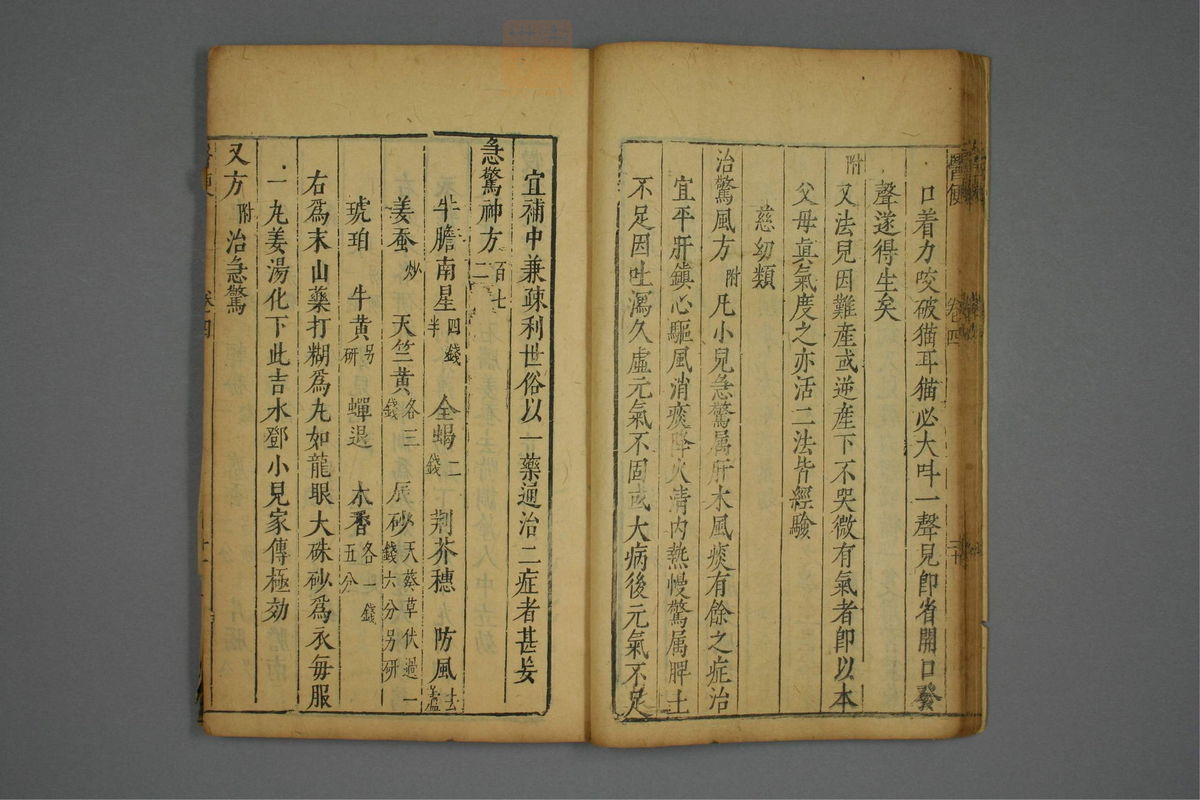 醫便
卷四
二十
口着力咬破猫耳猫必大呌一聲見即省開口發
聲遂得生矣
附又法兒因難産或逆産下不哭微有氣者即以本
父母眞氣度之亦活二法皆經驗
慈幼類
治驚風方附凡小兒急驚属肝木風痰有餘之症治
宜平肝鎮心驅風消痰降火清内熱慢驚属脾土
不足因吐瀉久虛元氣不固或大病後元氣不足
宜補中兼疎利世俗以一藥通治二症者甚妄
急驚神方百七二
牛膽南星四錢半 全蝎二錢 荆芥穗 防風去蘆
姜蚕炒 天竺黄各三錢 辰砂天葵草伏過一錢六分另研
琥珀 牛黄另研 蟬退 木香各一錢五分
右爲末山藥打糊爲丸如龍眼大硃砂爲衣每服
一丸姜湯化下此吉水鄧小見家傳極効
又方附治急驚
卷四